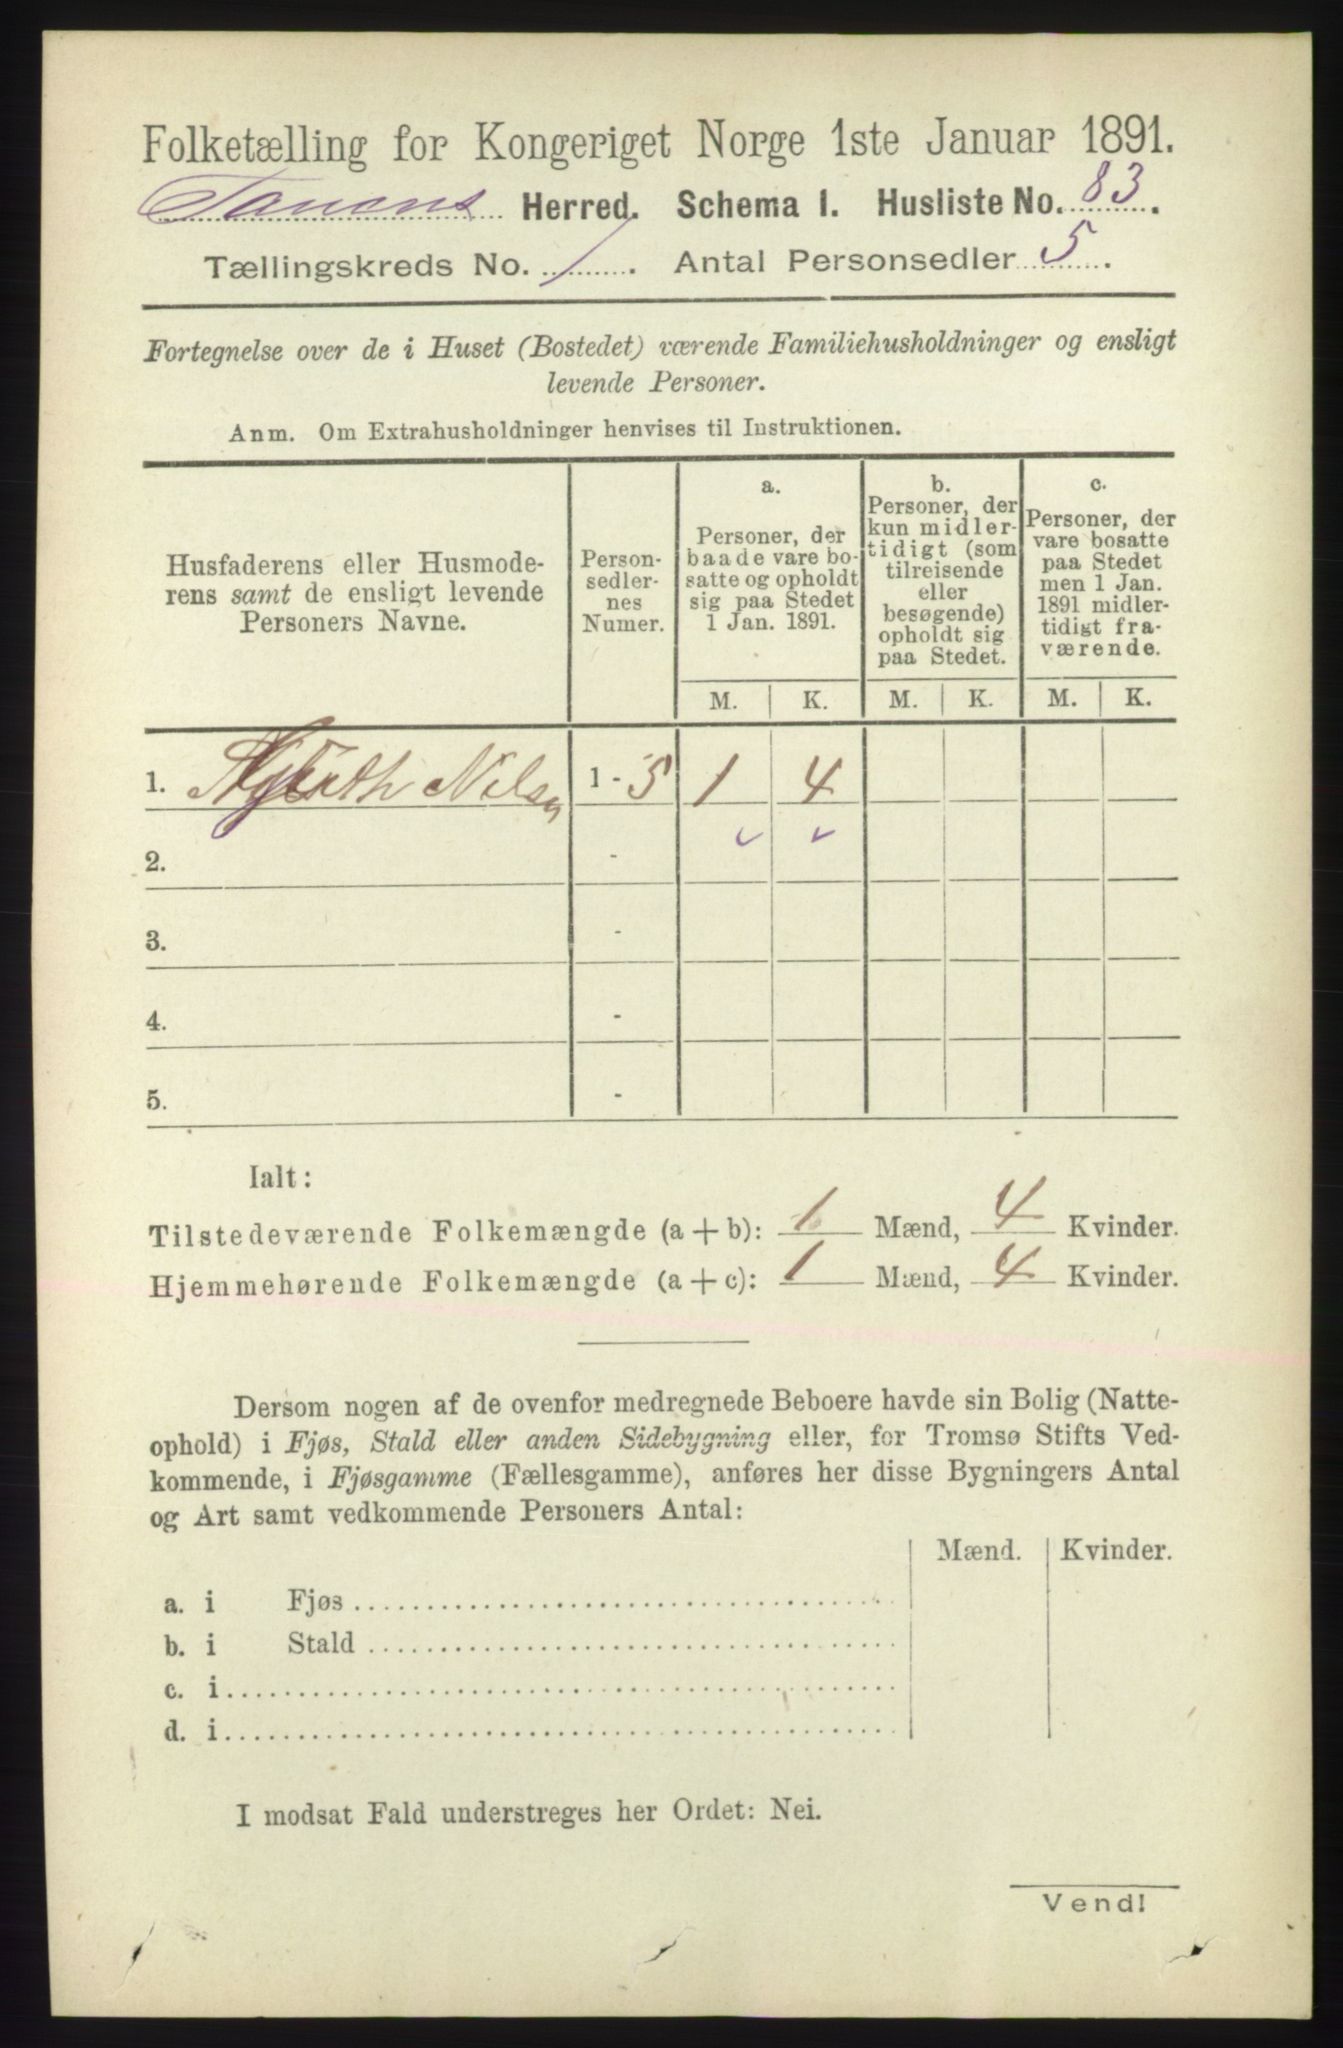 Folketælling for Kongeriget Norge 1ste Januar 1891.
Tanens Herred. Schema 1. Husliste No. 83.
Tællingskreds No. 1. Antal Personsedler 5.
Fortegnelse over de i Huset (Bostedet) værende Familiehusholdninger og ensligt
levende Personer.
Anm. Om Extrahusholdninger henvises til Instruktionen.
Husfaderens eller Husmode-
rens samt de ensligt levende
Personers Navne.
Person-
sedler-
nes
Numer.
a.
Personer, der
baade vare bo-
satte og opholdt
sig paa Stedet
1 Jan. 1891.
b.
Personer, der
kun midler-
tidigt (som
tilreisende
eller
besøgende)
opholdt sig
paa Stedet.
c.
Personer, der
vare bosatte
paa Stedet
men 1 Jan.
1891 midler-
tidigt fra-
værende.
M. K. M. K. M. K.
1. Nilsen 1 - 5 1 4
2. -
3. -
4. -
5. -
Ialt:
Tilstedeværende Folkemængde (a + b): 1 Mænd, 4 Kvinder.
Hjemmehørende Folkemængde (a + c): 1 Mænd, 4 Kvinder.
Dersom nogen af de ovenfor medregnede Beboere havde sin Bolig (Natte-
ophold) i Fjøs, Stald eller anden Sidebygning eller, for Tromsø Stifts Ved-
kommende, i Fjøsgamme (Fællesgamme), anføres her disse Bygningers Antal
og Art samt vedkommende Personers Antal:
Mænd. Kvinder.
a. i Fjøs
b. i Stald
c. i
d. i
I modsat Fald understreges her Ordet: Nei.
Vend!